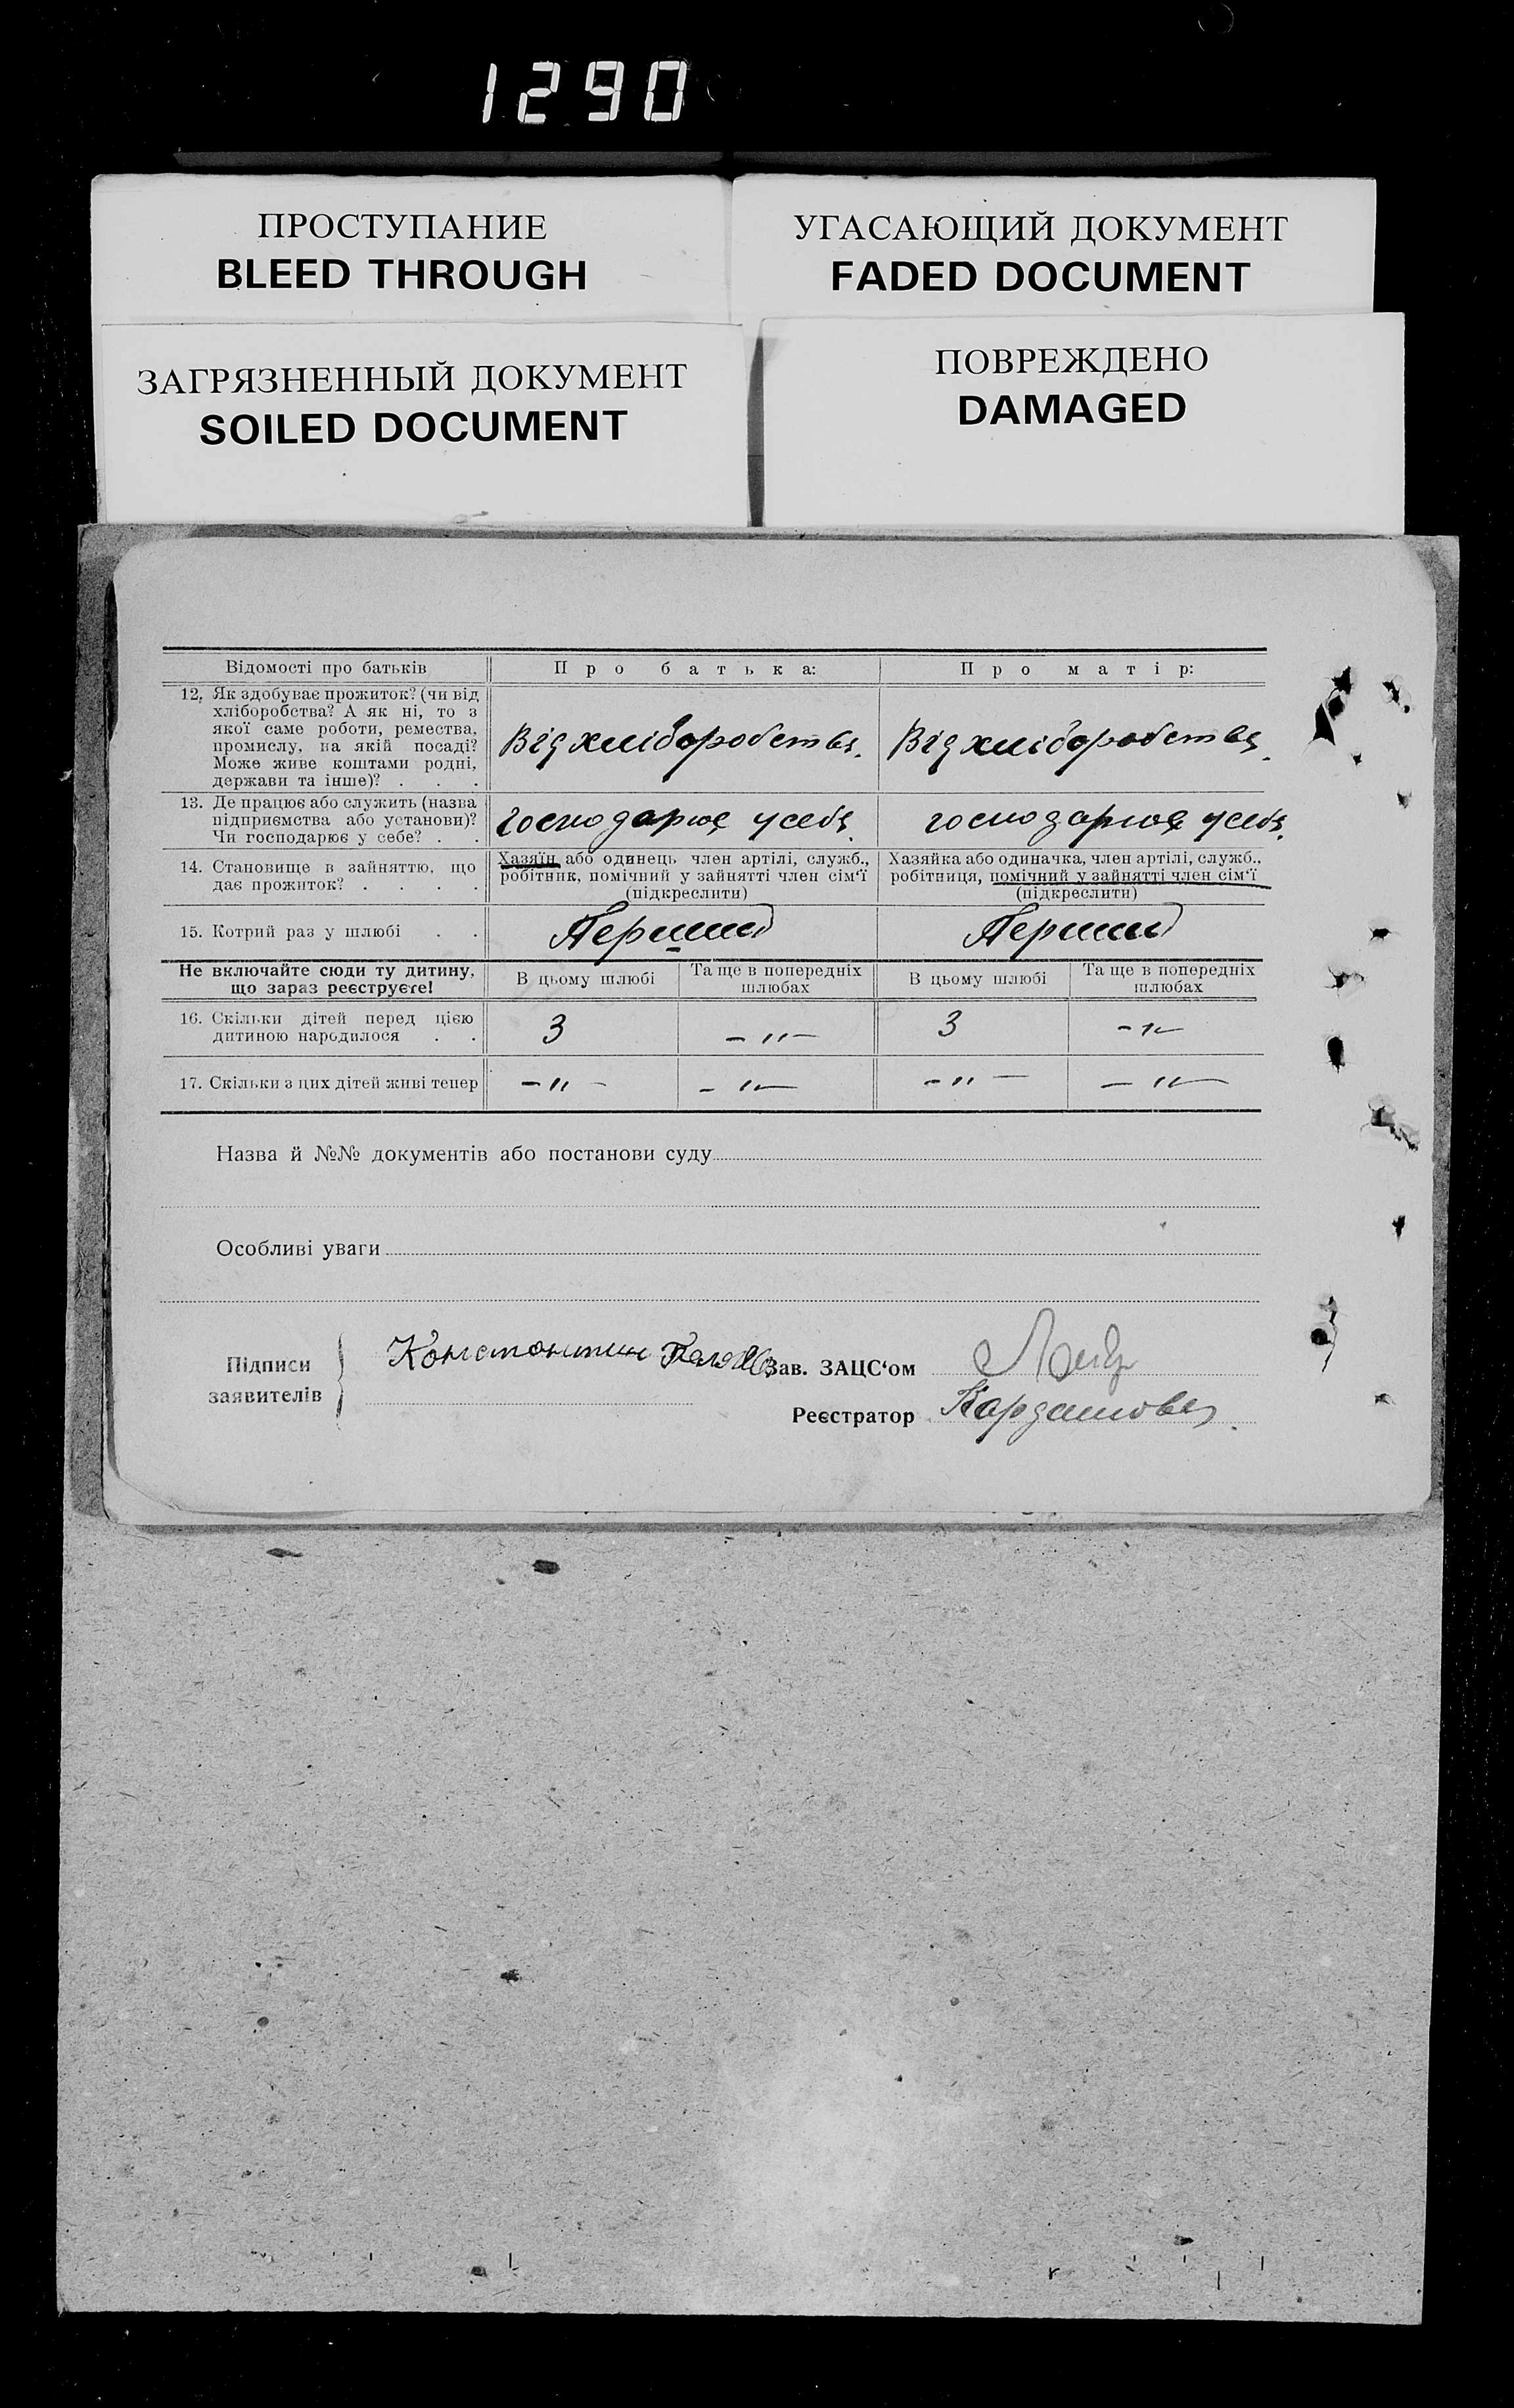 1290
ПРОСТУПАНИЕ
BLEED THROUGH
УГАСАЮЩИЙ ДОКУМЕНТ
FADED DOCUMENT
ЗАГРЯЗНЕННЫЙ ДОКУМЕНТ
SOILED DOCUMENT
ПОВРЕЖДЕНО
DAMAGED
Відомості про батьків
Про батька:
Про матір:
12. Як здобуває прожиток? (чи від
хліборобства? А як ні, то з
якої саме роботи, ремества,
промислу, на якій посаді?
Може живе коштами родні,
держави та інше)? . . .
Від хліборобства.
Від хліборобства.
13. Де працює або служить (назва
підприємства або установи)?
Чи господарює у себе? . .
господарює у себе.
господарює у себе.
14. Становище в зайняттю, що
дає прожиток? . . . .
Хазяїн, або одинець член артілі, служб.,
робітник, помічний у зайнятті член сім'ї
(підкреслити)
Хазяйка або одиначка, член артілі, служб.,
робітниця, помічний у зайнятті член сім'ї
(підкреслити)
15. Котрий раз у шлюбі . .
Перший
Перший
Не включайте сюди ту дитину,
що зараз реєструєте!
В цьому шлюбі
Та ще в попередніх
шлюбах
В цьому шлюбі
Та ще в попередніх
шлюбах
16. Скільки дітей перед цією
дитиною народилося . .
3
– " –
3
– " –
17. Скільки з цих дітей живі тепер
– " –
– " –
– " –
– " –
Назва й №№ документів або постанови суду
Особливі уваги
Підписи
заявителів
Константин
Зав. ЗАЦС'ом
Реєстратор